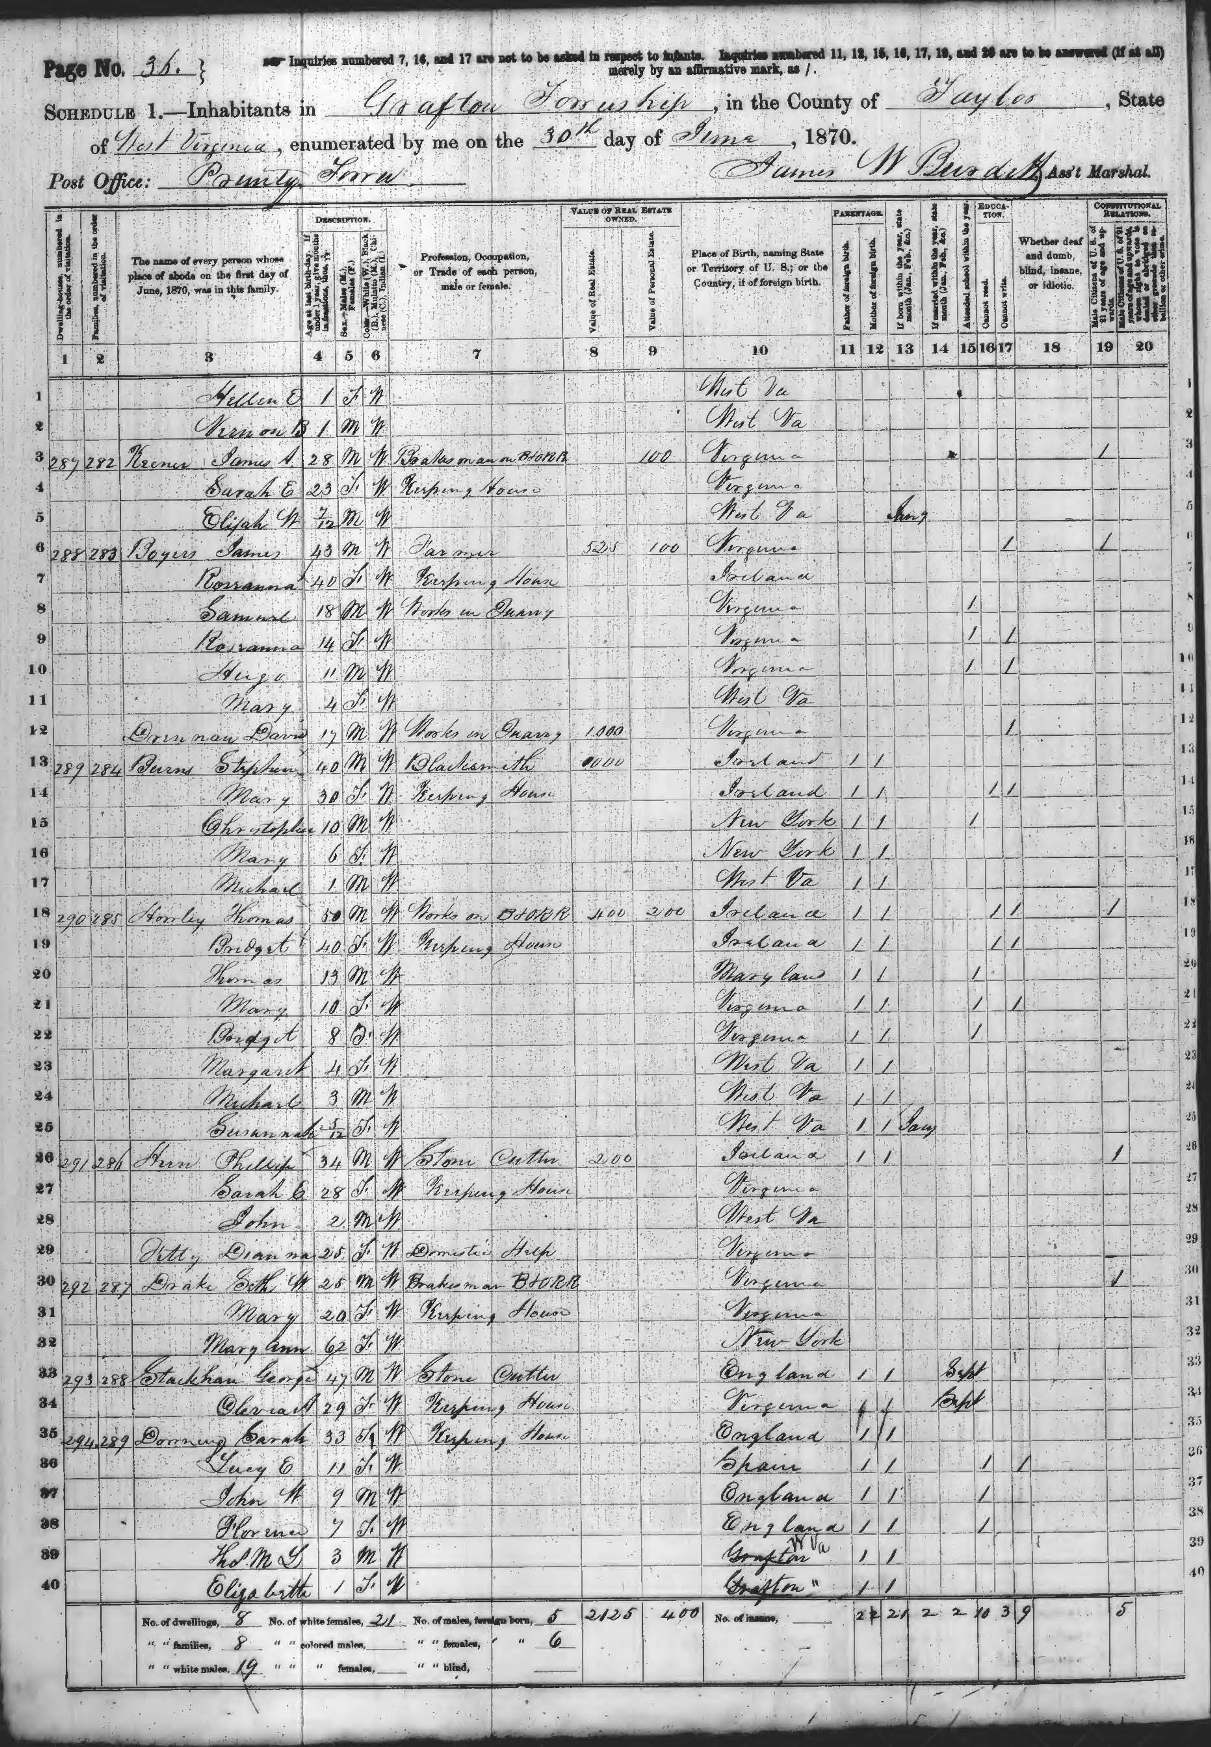 Page No. 36. Inquiries numbered 7, 16, and 17 are not to be asked in respect to infants. Inquiries numbered 11, 12, 15, 16, 17, 19, and 20 are to be answered (if at all)
merely by an affirmative mark, as /.
SCHEDULE 1.—Inhabitants in Grafton Township, in the County of Taylor, State
of West Virginia, enumerated by me on the 30th day of June, 1870.
Post Office: Prunty Town James W Burdett, Ass't Marshal.
DESCRIPTION. VALUE OF REAL ESTATE OWNED. PARENTAGE. EDUCATION. CONSTITUTIONAL RELATIONS.
Dwelling-houses, numbered in the order of visitation.
Families, numbered in the order of visitation.
The name of every person whose place of abode on the first day of June, 1870, was in this family.
Age at last birth-day. If under 1 year, give months in fractions, thus, 3/12
Sex.—Males (M.), Females (F.)
Color.—White (W.), Black (B.), Mulatto (M.), Chinese (C.), Indian (I.)
Profession, Occupation, or Trade of each person, male or female.
Value of Real Estate.
Value of Personal Estate.
Place of Birth, naming State or Territory of U. S.; or the Country, if of foreign birth.
Father of foreign birth.
Mother of foreign birth.
If born within the year, state month (Jan. Feb., &c.)
If married within the year, state month (Jan. Feb., &c.)
Attended school within the year.
Cannot read.
Cannot write.
Whether deaf and dumb, blind, insane, or idiotic.
Male Citizens of U. S. of 21 years of age and upwards.
Male Citizens of U. S. of 21 years of age and upwards, whose right to vote is denied or abridged on other grounds than rebellion or other crime.
1 2 3 4 5 6 7 8 9 10 11 12 13 14 15 16 17 18 19 20
1 Hellen E 1 F W West Va 1
2 Vernon B 1 M W West Va 2
3 287 282 James A. 28 M W Brakesman on B&ORR 100 Virginia / 3
4 Sarah E 23 F W Keeping House Virginia 4
5 Elijah W 7/12 M W West Va 5
6 288 283 Boyers James 43 M W Farmer 525 100 Virginia / / 6
7 Rossanna 40 F W Keeping House Ireland 7
8 Samuel 18 M W Works in Quarry Virginia / 8
9 Rossanna 14 F W Virginia / / 9
10 Hugo 11 M W Virginia / / 10
11 Mary 4 F W West Va 11
12 Drennan David 17 M W Works in Quarry 1000 Virginia / 12
13 289 284 Burns Stephen 40 M W Blacksmith Ireland / / 13
14 Mary 30 F W Keeping House Ireland / / / / 14
15 Christopher 10 M W New York / / / 15
16 Mary 6 F W New York / / 16
17 Michael 1 M W West Va / / 17
18 290 285 Howley Thomas 50 M W Works on B&ORR 400 200 Ireland / / / / / 18
19 Bridget 40 F W Keeping House Ireland / / / / 19
20 Thomas 13 M W Maryland / / / 20
21 Mary 10 F W Virginia / / / / 21
22 Bridget 8 F W Virginia / / / 22
23 Margaret 4 F W West Va / / 23
24 Michael 3 M W West Va / / 24
25 Susannah 5/12 F W West Va / / Jany 25
26 291 286 Hern Phillip 34 M W Stone Cutter 200 Ireland / / / 26
27 Sarah C 28 F W Keeping House Virginia 27
28 John 2 M W West Va 28
29 Dianna 25 F W Domestic Help Virginia 29
30 292 287 Drake Seth W 25 M W Brakesman B&ORR Virginia / 30
31 Mary 20 F W Keeping House Virginia 31
32 Mary Ann 62 F W New York 32
33 293 288 George 47 M W Stone Cutter England / / Sept 33
34 29 F W Keeping House Virginia / / Sept 34
35 294 289 Downing Sarah 33 F W Keeping House England / / 35
36 Lucy E 11 F W Spain / / / / 36
37 John W 9 M W England / / / 37
38 Florence 7 F W England / / / 38
39 Thos. M L 3 M W Grafton W Va / / 39
40 Elizabeth 1 F W Grafton " / / 40
No. of dwellings, 8 No. of white females, 21 No. of males, foreign born, 5 2125 400 No. of insane, 22 21 2 2 10 3 9 5
" " families, 8 " " colored males, " " females, " " 6
" " white males, 19 " " " females, " " blind,